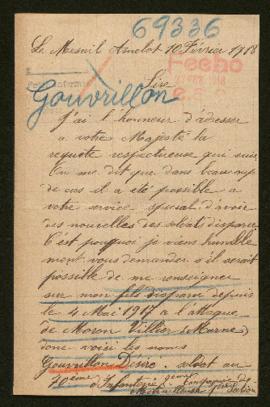 69336
Le Mesnil Amelot 10 Février 1918
Fecho
Sire
Gouvrillon
J'ai l'honneur d'adresser
a votre Majesté la
requete respectueuse qui suit
On me dit que dans beaucoup
de cas il a été possible a
votre service special d'avoir
des nouvelles des soldats disparus
C'est pourquoi je viens humble
ment vous demander s'il serait
possible de me renseigner
sur mon fils disparu depuis
le 4 Mai 1917 à l'attaque
de Moron Villier Marne
dont voici les noms
Gouvrillon Désiré soldat au
d'Infanterie 2eme Compagnie
Section